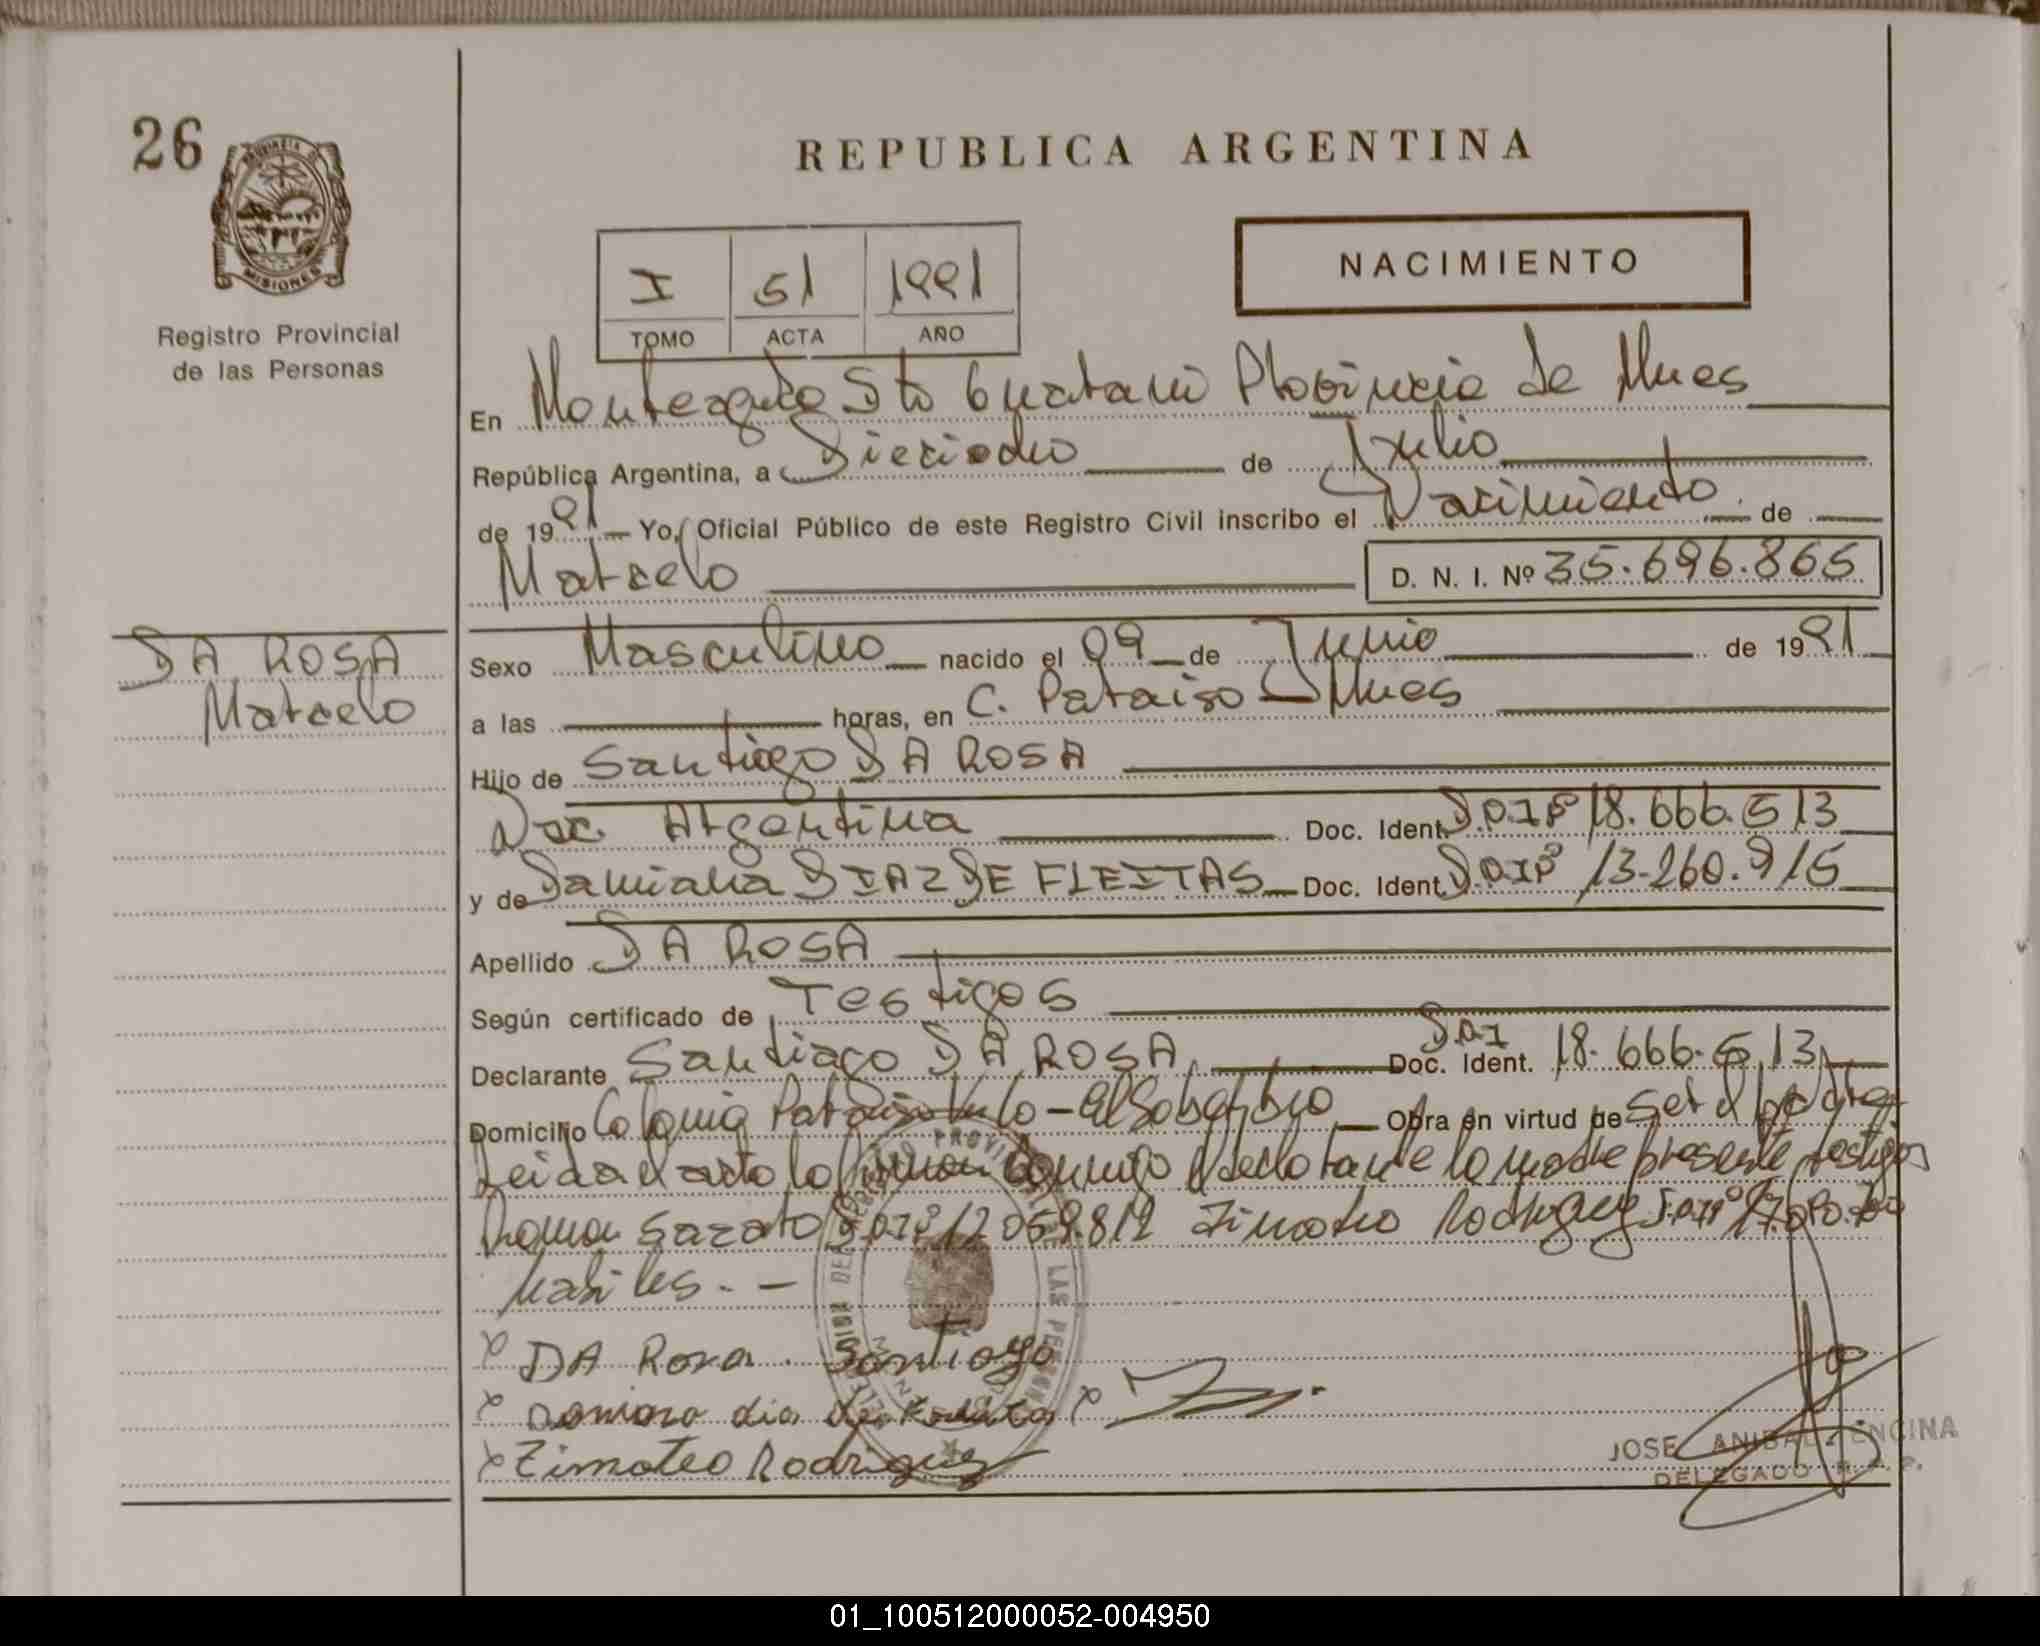 26
REPUBLICA ARGENTINA
PROVINCIA DE
MISIONES
Registro Provincial
de las Personas
I 51 1991
TOMO ACTA AÑO
NACIMIENTO
En Monteagudo Dto Guarani Provincia de Mnes
República Argentina, a Dieciocho de Julio
de 1991 Yo, Oficial Público de este Registro Civil inscribo el Nacimiento de
Marcelo D. N. I. Nº 35.696.865
DA ROSA
Marcelo
Sexo Masculino nacido el 09 de Junio de 1991
a las horas, en C. Paraiso Mnes
Hijo de Santiago DA ROSA
Nac. Argentina Doc. Ident. D.N.I Nº 18.666.513
y de Damiana DIAZ DE FLEITAS Doc. Ident. D.N.I Nº 13.260.915
Apellido DA ROSA
Según certificado de Testigos
Declarante Santiago DA ROSA Doc. Ident. D.N.I 18.666.513
Domicilio Colonia Paraiso - El Soberbio Obra en virtud de ser el padre
Leida el acta la firman conmigo el declarante la madre presente testigos
Ramon D.N.I Nº 12.059.812 Timoteo Rodriguez D.N.I Nº
habiles. -
x DA Rosa Santiago
x Damiana dia de x
x Timoteo Rodriguez
JOSE ANIBAL ENCINA
DELEGADO R. P. P.
01_100512000052-004950